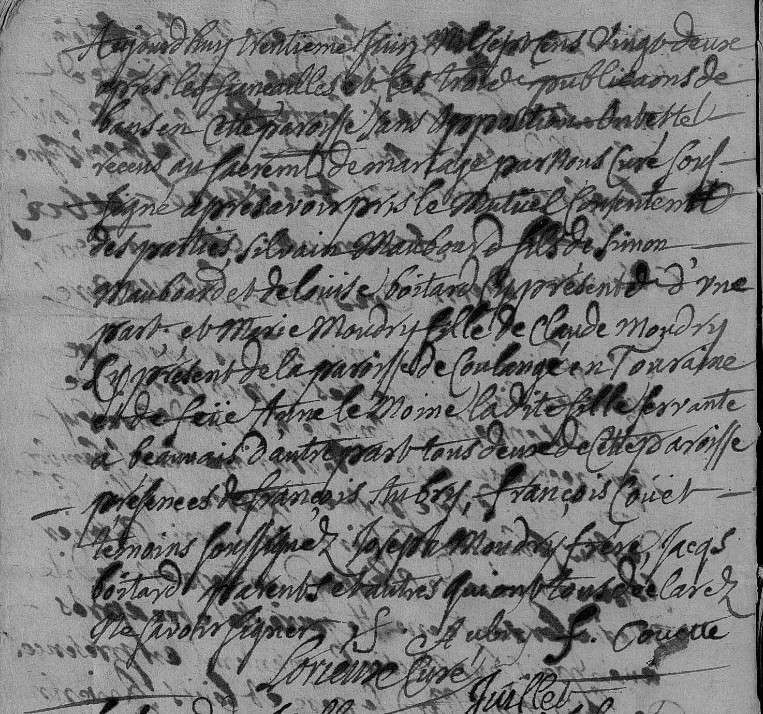 Aujourdhuy trentieme Juin Mil sept cens vingt deux
apres les fiancailles et les trois publicaons de
bans en Cette paroisse sans opposition
receus au sacremt. de mariage par Nous Curé sous-
signé apres avoir pris le Mutuel Consentemt
des parties, silvain Mauboard fils de Simon
Mauboard et de louise boitard Cy présent d'vne
part et Marie Moudry fille de Claude Moudry
Cy présent de la paroisse de Coulange en Touraine
et de feüe Anne le Moine ladite fille servante
a beauvais d'autre part tous deux de Cette paroisse
présences de françois Aubry, françois Coüet
temoins soussignez Joseph Moudry frere, Jacqs
boitard parents et autres qui ont tous declarez
ne savoir signer f. Aubry f. Couette
Curé
Juillet